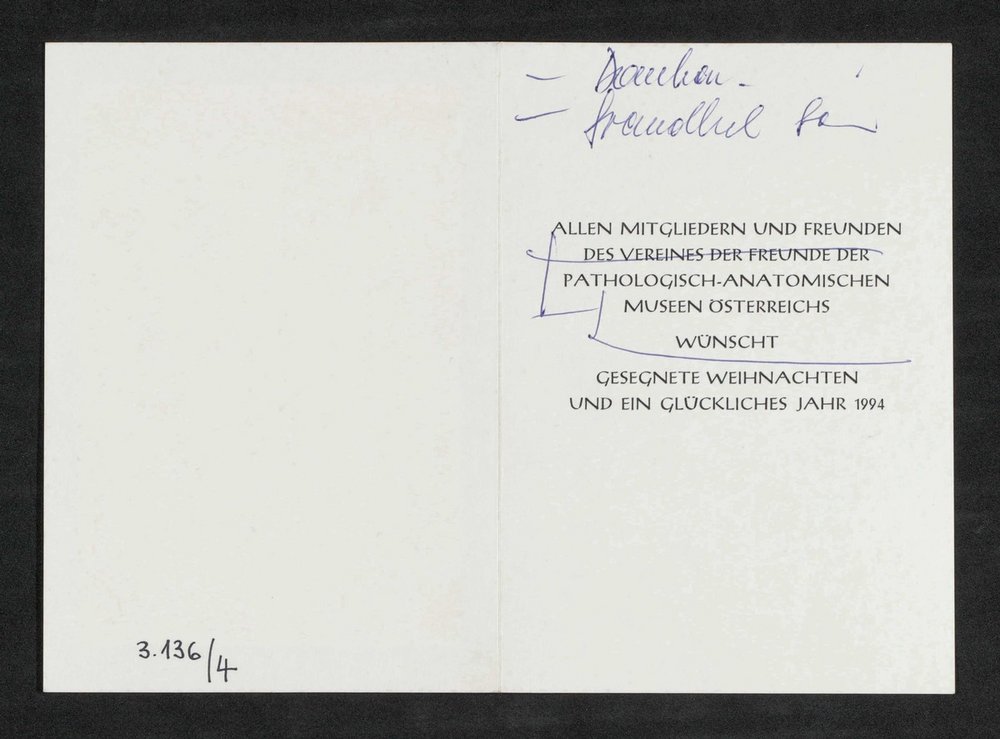 3.136/4
ALLEN MITGLIEDERN UND FREUNDEN
DES VEREINES DER FREUNDE DER
PATHOLOGISCH-ANATOMISCHEN
MUSEEN ÖSTERREICHS
WÜNSCHT
GESEGNETE WEIHNACHTEN
UND EIN GLÜCKLICHES JAHR 1994